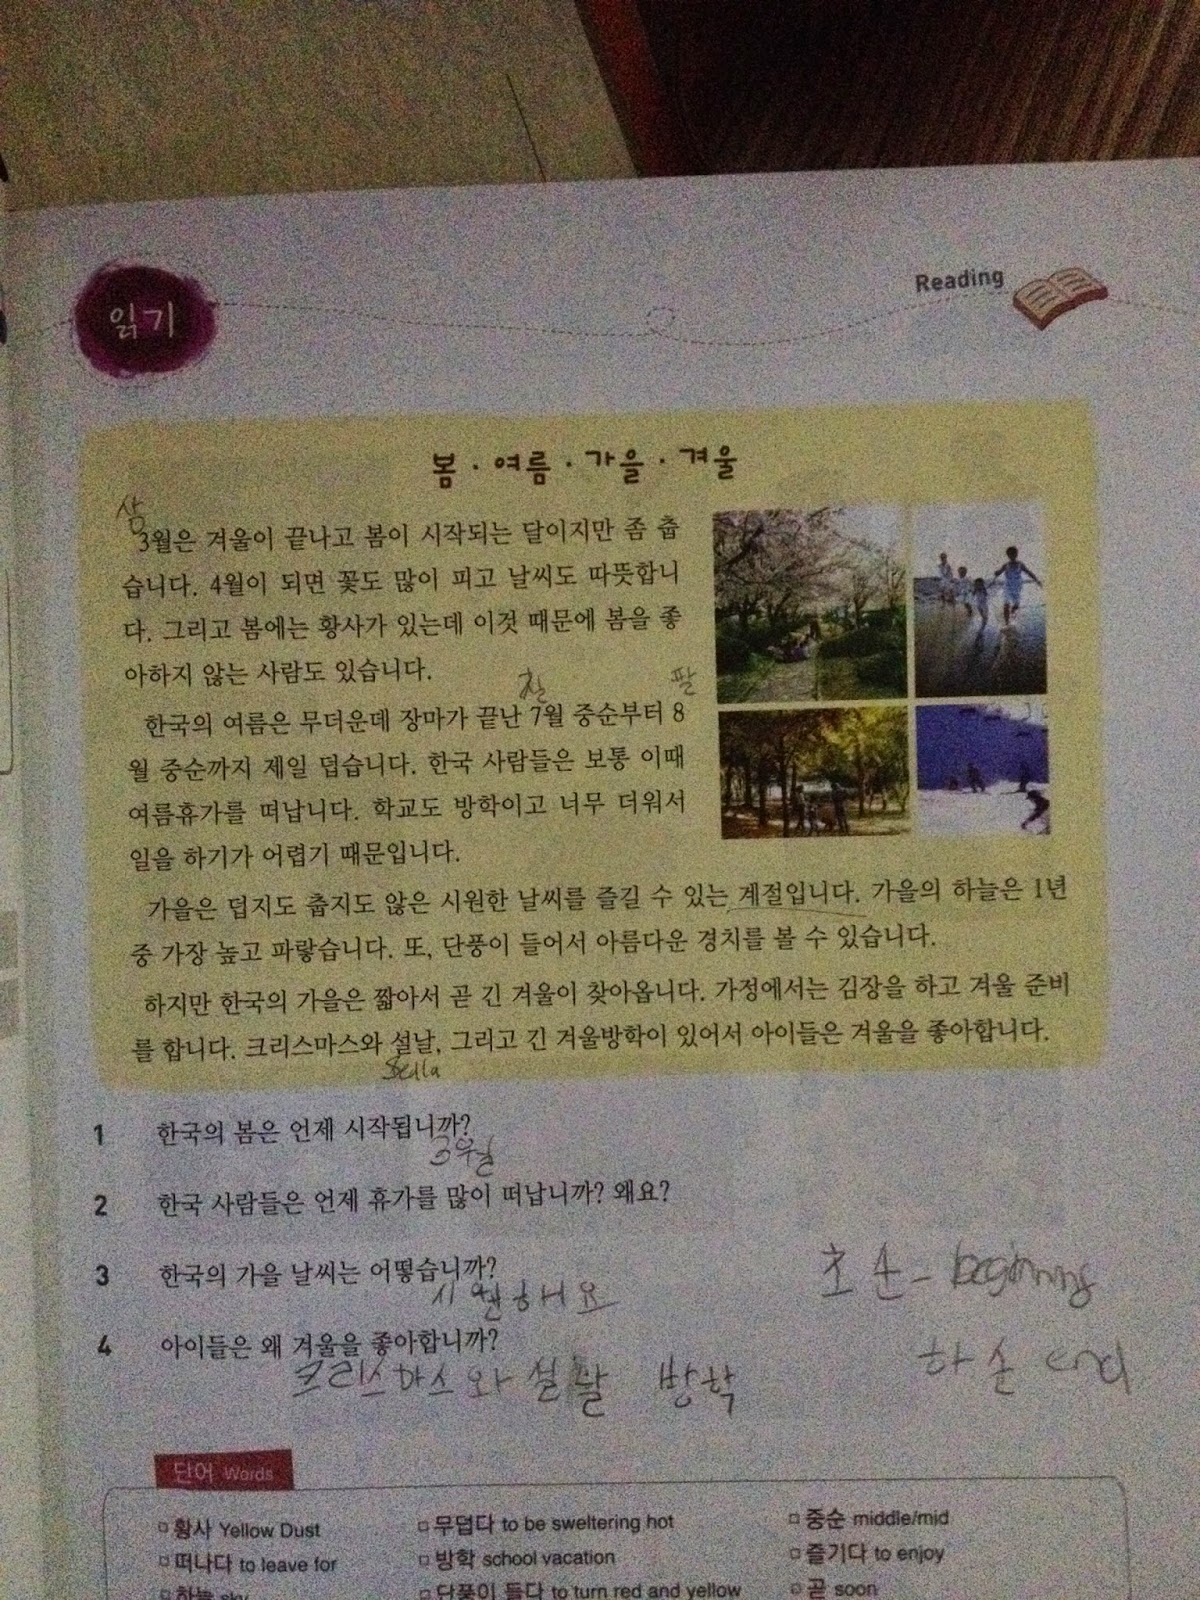 읽기
Reading
봄·여름·가을·겨울
삼
3월은 겨울이 끝나고 봄이 시작되는 달이지만 좀 춥
습니다. 4월이 되면 꽃도 많이 피고 날씨도 따뜻합니
다. 그리고 봄에는 황사가 있는데 이것 때문에 봄을 좋
아하지 않는 사람도 있습니다.
칠 팔
한국의 여름은 무더운데 장마가 끝난 7월 중순부터 8
월 중순까지 제일 덥습니다. 한국 사람들은 보통 이때
여름휴가를 떠납니다. 학교도 방학이고 너무 더워서
일을 하기가 어렵기 때문입니다.
가을은 덥지도 춥지도 않은 시원한 날씨를 즐길 수 있는 계절입니다. 가을의 하늘은 1년
중 가장 높고 파랗습니다. 또, 단풍이 들어서 아름다운 경치를 볼 수 있습니다.
하지만 한국의 가을은 짧아서 곧 긴 겨울이 찾아옵니다. 가정에서는 김장을 하고 겨울 준비
를 합니다. 크리스마스와 설날, 그리고 긴 겨울방학이 있어서 아이들은 겨울을 좋아합니다.
Sella
1 한국의 봄은 언제 시작됩니까?
3월
2 한국 사람들은 언제 휴가를 많이 떠납니까? 왜요?
3 한국의 가을 날씨는 어떻습니까?
시원해요
초순 - beginning
4 아이들은 왜 겨울을 좋아합니까?
크리스마스와 설날 방학
하순
단어 Words
황사 Yellow Dust
무덥다 to be sweltering hot
중순 middle/mid
떠나다 to leave for
방학 school vacation
즐기다 to enjoy
하늘 sky
단풍이 들다 to turn red and yellow
곧 soon